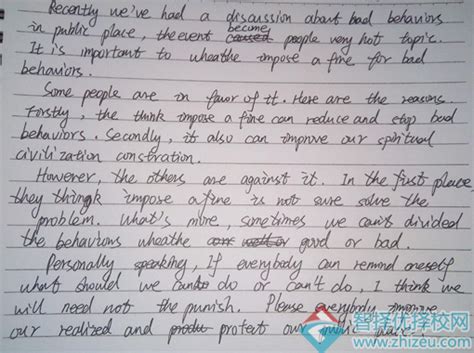 Recently we've had a discussion about bad behaviors
become
in public place, the event caused people very hot topic.
It is important to wheathe impose a fine for bad
behaviors.
Some people are in favor of it. Here are the reasons.
Firstly, the think impose a fine can reduce and stop bad
behaviors. Secondly, it also can improve our spiritual
civilization constration.
However, the others are against it. In the first place
they thingk impose a fine is not sure solve the
problem. What's more, sometimes we can't divided
the behaviors wheathe or good or bad.
Personally speaking, If everybody can remind oneself
what should we can do or can't do, I think we
will need not the punish. Please everybody improve
our realized and protect our public
智择优择校网
www.zhizeu.com